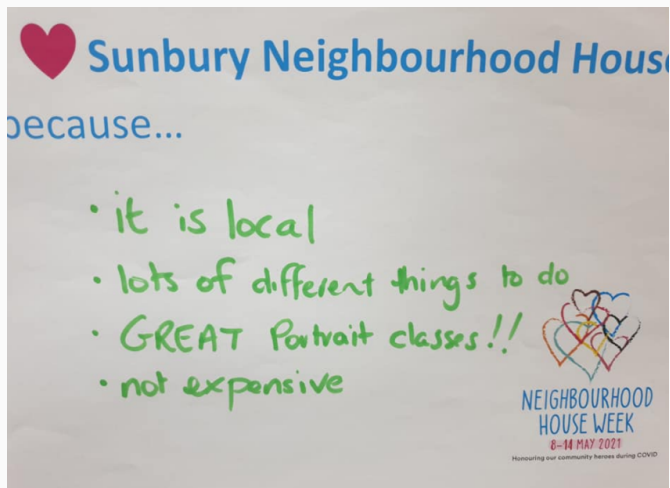 Sunbury Neighbourhood House
because...
• it is local
• lots of different things to do
• GREAT Portrait classes!!
• not expensive
NEIGHBOURHOOD
HOUSE WEEK
8-14 MAY 2021
Honouring our community heroes during COVID